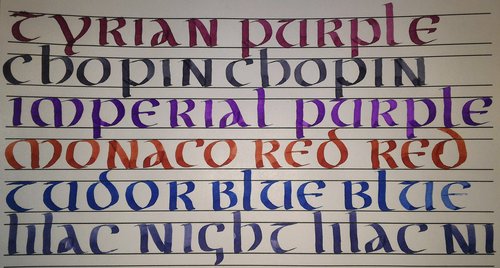 TYRIAN PURPLE
CHOPIN CHOPIN
IMPERIAL PURPLE
MONACO RED RED
TUDOR BLUE BLUE
LILAC NIGHT LILAC NI